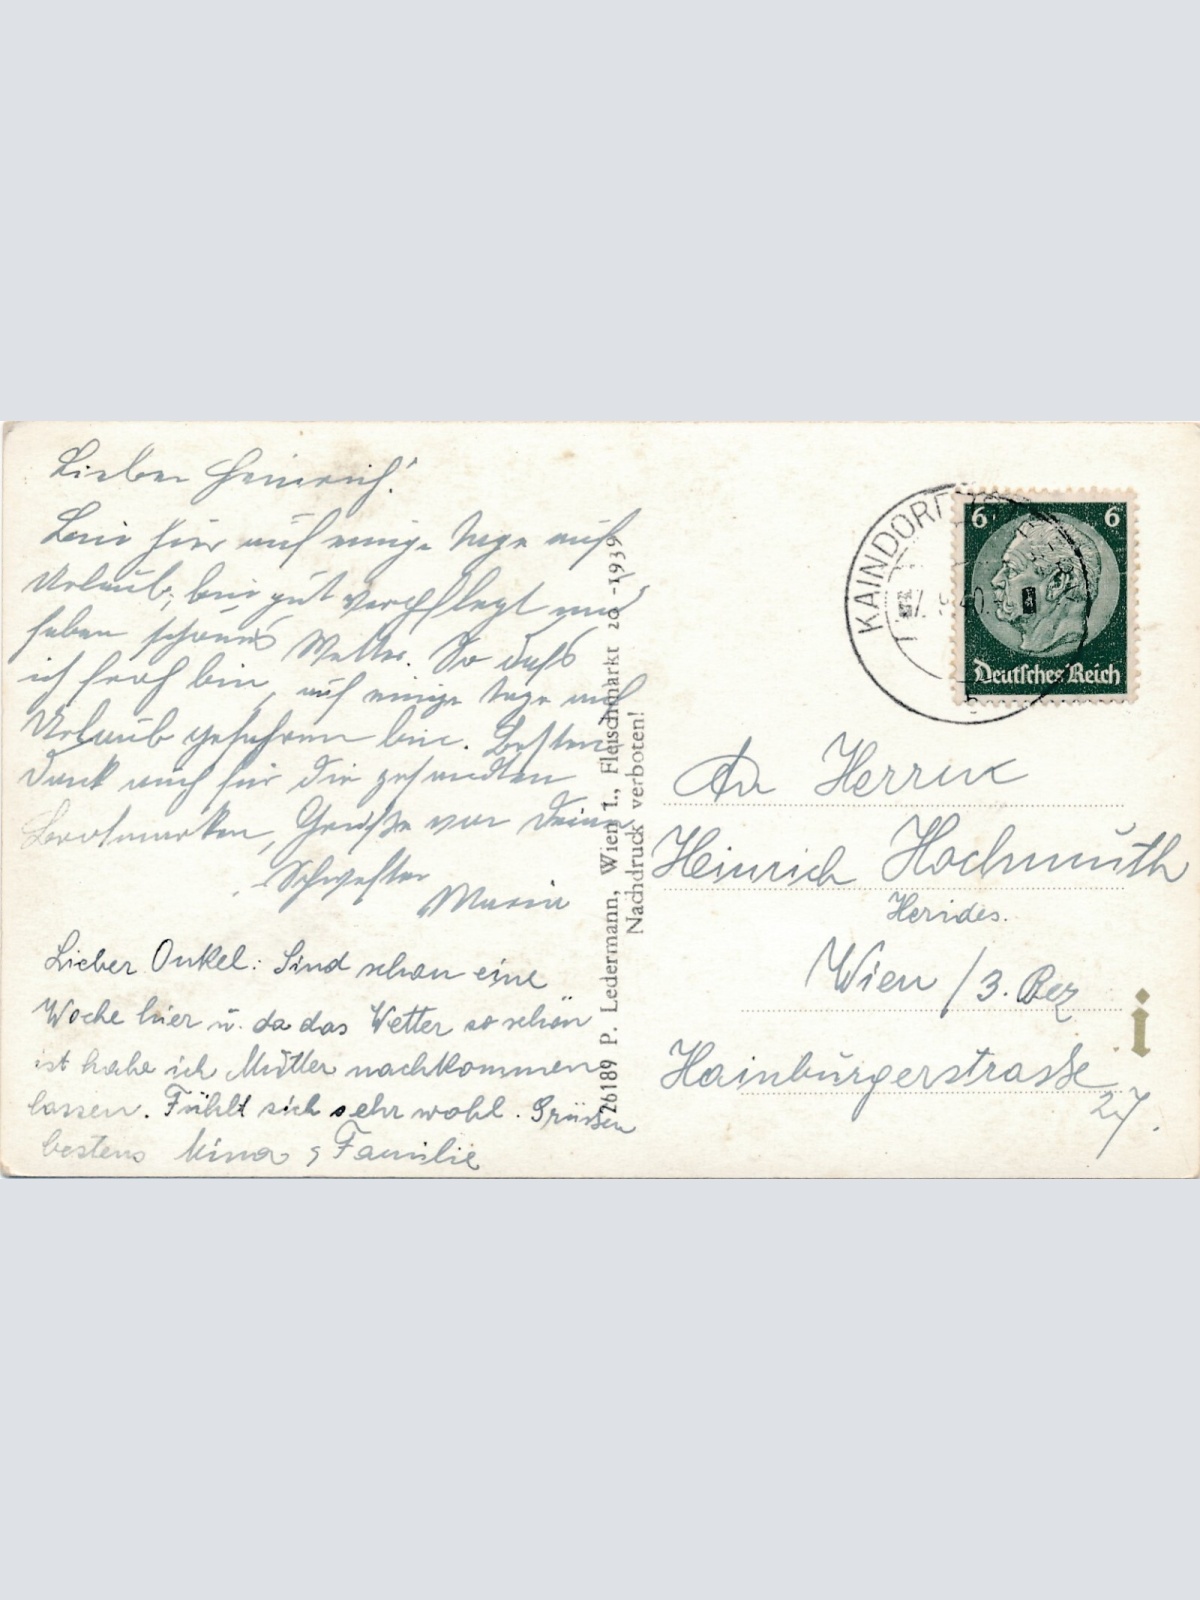 Lieber Heinrich!
Bin hier auf einige Tage auf
Urlaub, bin gut verpflegt und
haben schönes Wetter. So daß
ich froh bin, auf einige Tage auf
Urlaub gefahren bin. Besten
Dank auch für die gesandten
Brotmarken, Grüße von Deine
Schwester
Maria
Lieber Onkel: Sind schon eine
Woche hier u. da das Wetter so schön
ist habe ich Mutter nachkommen
lassen. Fühlt sich sehr wohl. Grüssen
bestens Mina & Familie
26189 P. Ledermann, Wien I., Fleischmarkt 20 -1939
Nachdruck verboten!
KAINDORF
6 6
Deutsches Reich
An Herrn
Heinrich Hochmuth
Wien / 3. Bez
Hainburgerstrasse
27.
i